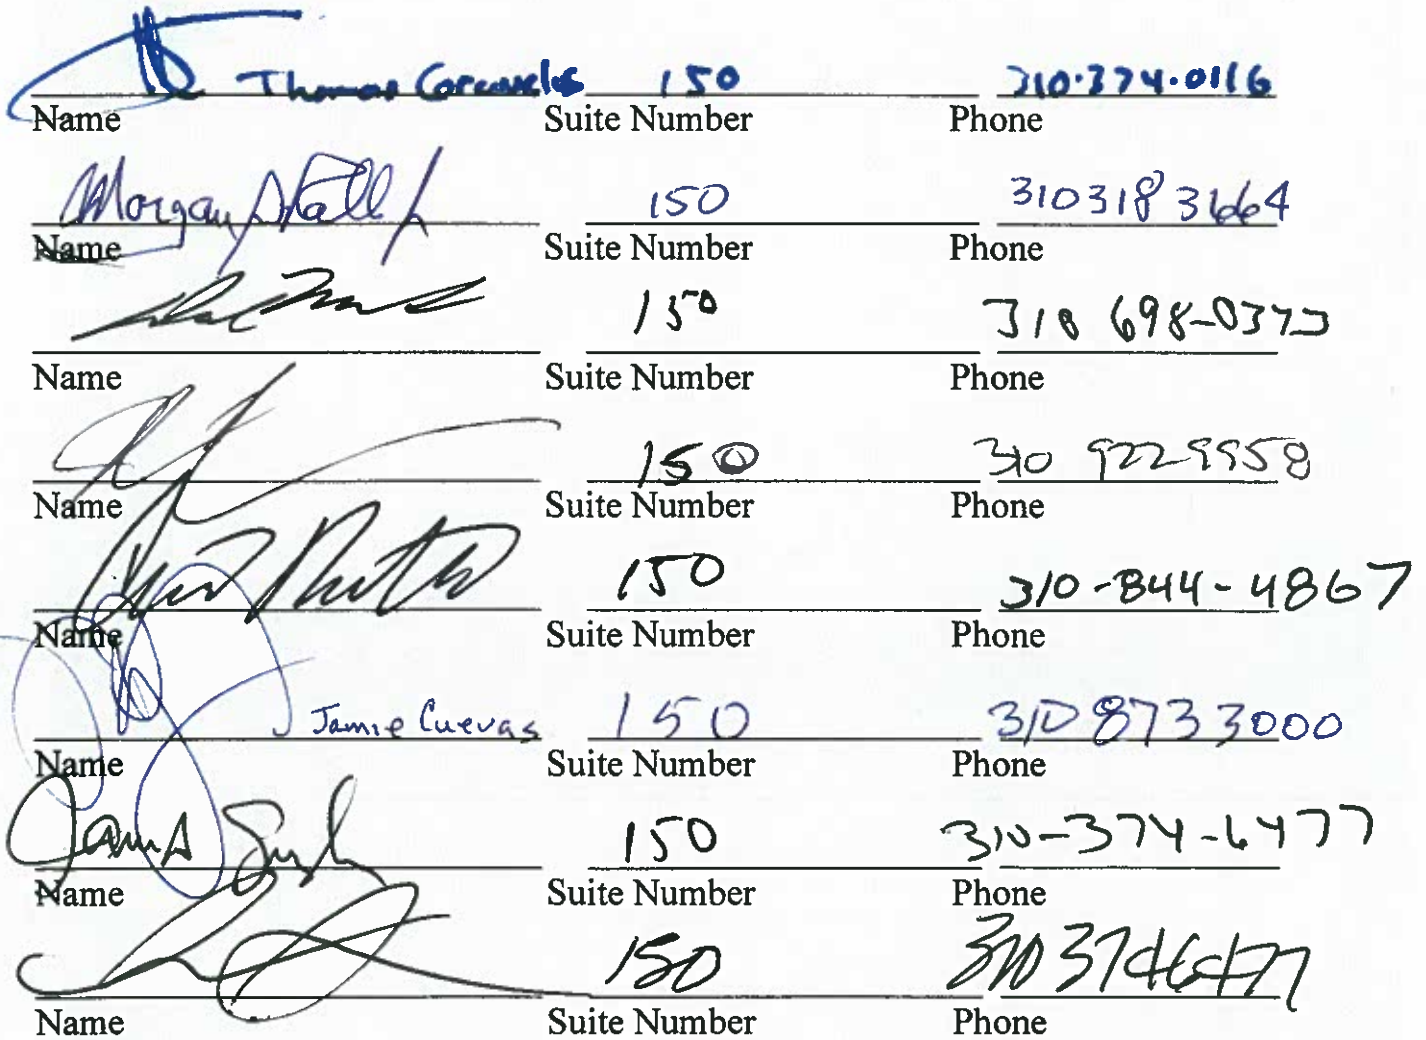 Thomas Corcovelos 150 310.374.0116
Name Suite Number Phone
Morgan 150 310 318 3664
Name Suite Number Phone
150 310 698-0373
Name Suite Number Phone
150 310 9229958
Name Suite Number Phone
150 310-844-4867
Name Suite Number Phone
Jamie Cuevas 150 310 8733000
Name Suite Number Phone
150 310-374-6477
Name Suite Number Phone
150 310 3746477
Name Suite Number Phone